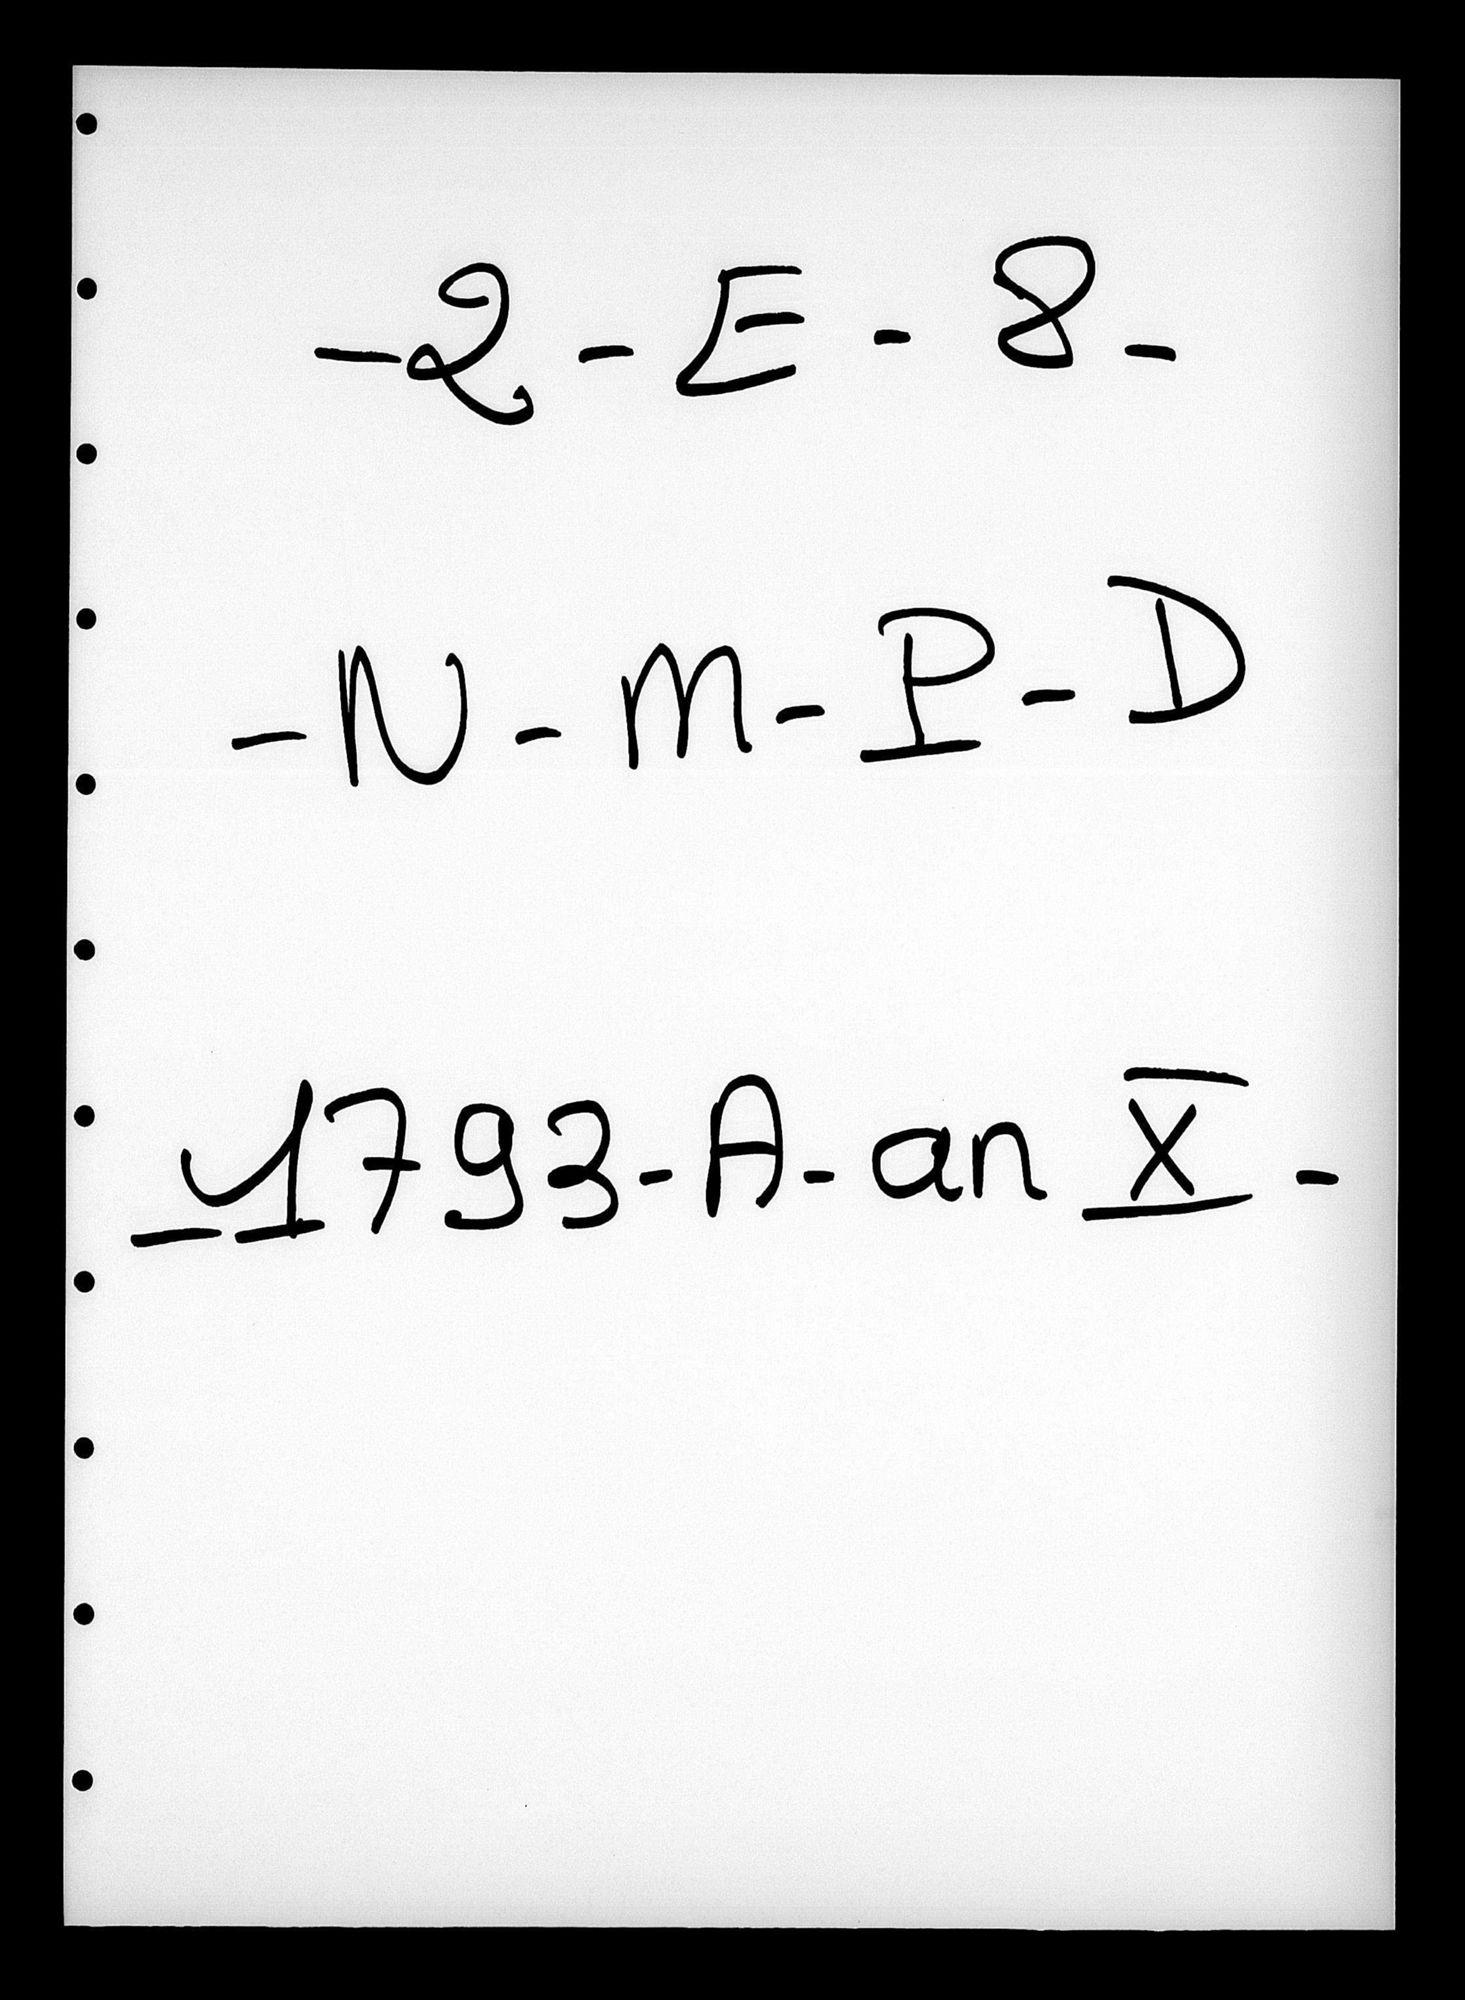 - 2 - E - 8 -
- N - M - P - D
- 1793 - A - an X -